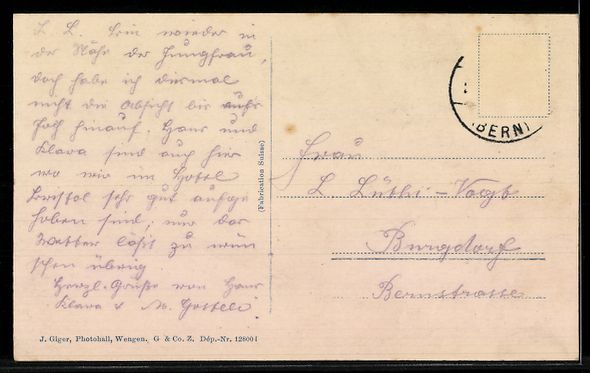 L. L. Bin wieder in
der Nähe der Jungfrau,
doch habe ich diesmal
nicht die Absicht bis
hinauf. Hans und
Klara sind auch hier
wo wir im Hotel
Bristol sehr gut aufge
hoben sind; nur das
Wetter lässt zu wün
schen übrig.
Herzl. Grüsse von Hans
Klara & M.
J. Giger, Photohall, Wengen. G & Co. Z. Dép.-Nr. 12800 I
(Fabrication Suisse)
(BERN)
Frau
L. Lüthi-Vogt
Burgdorf
Bernstrasse